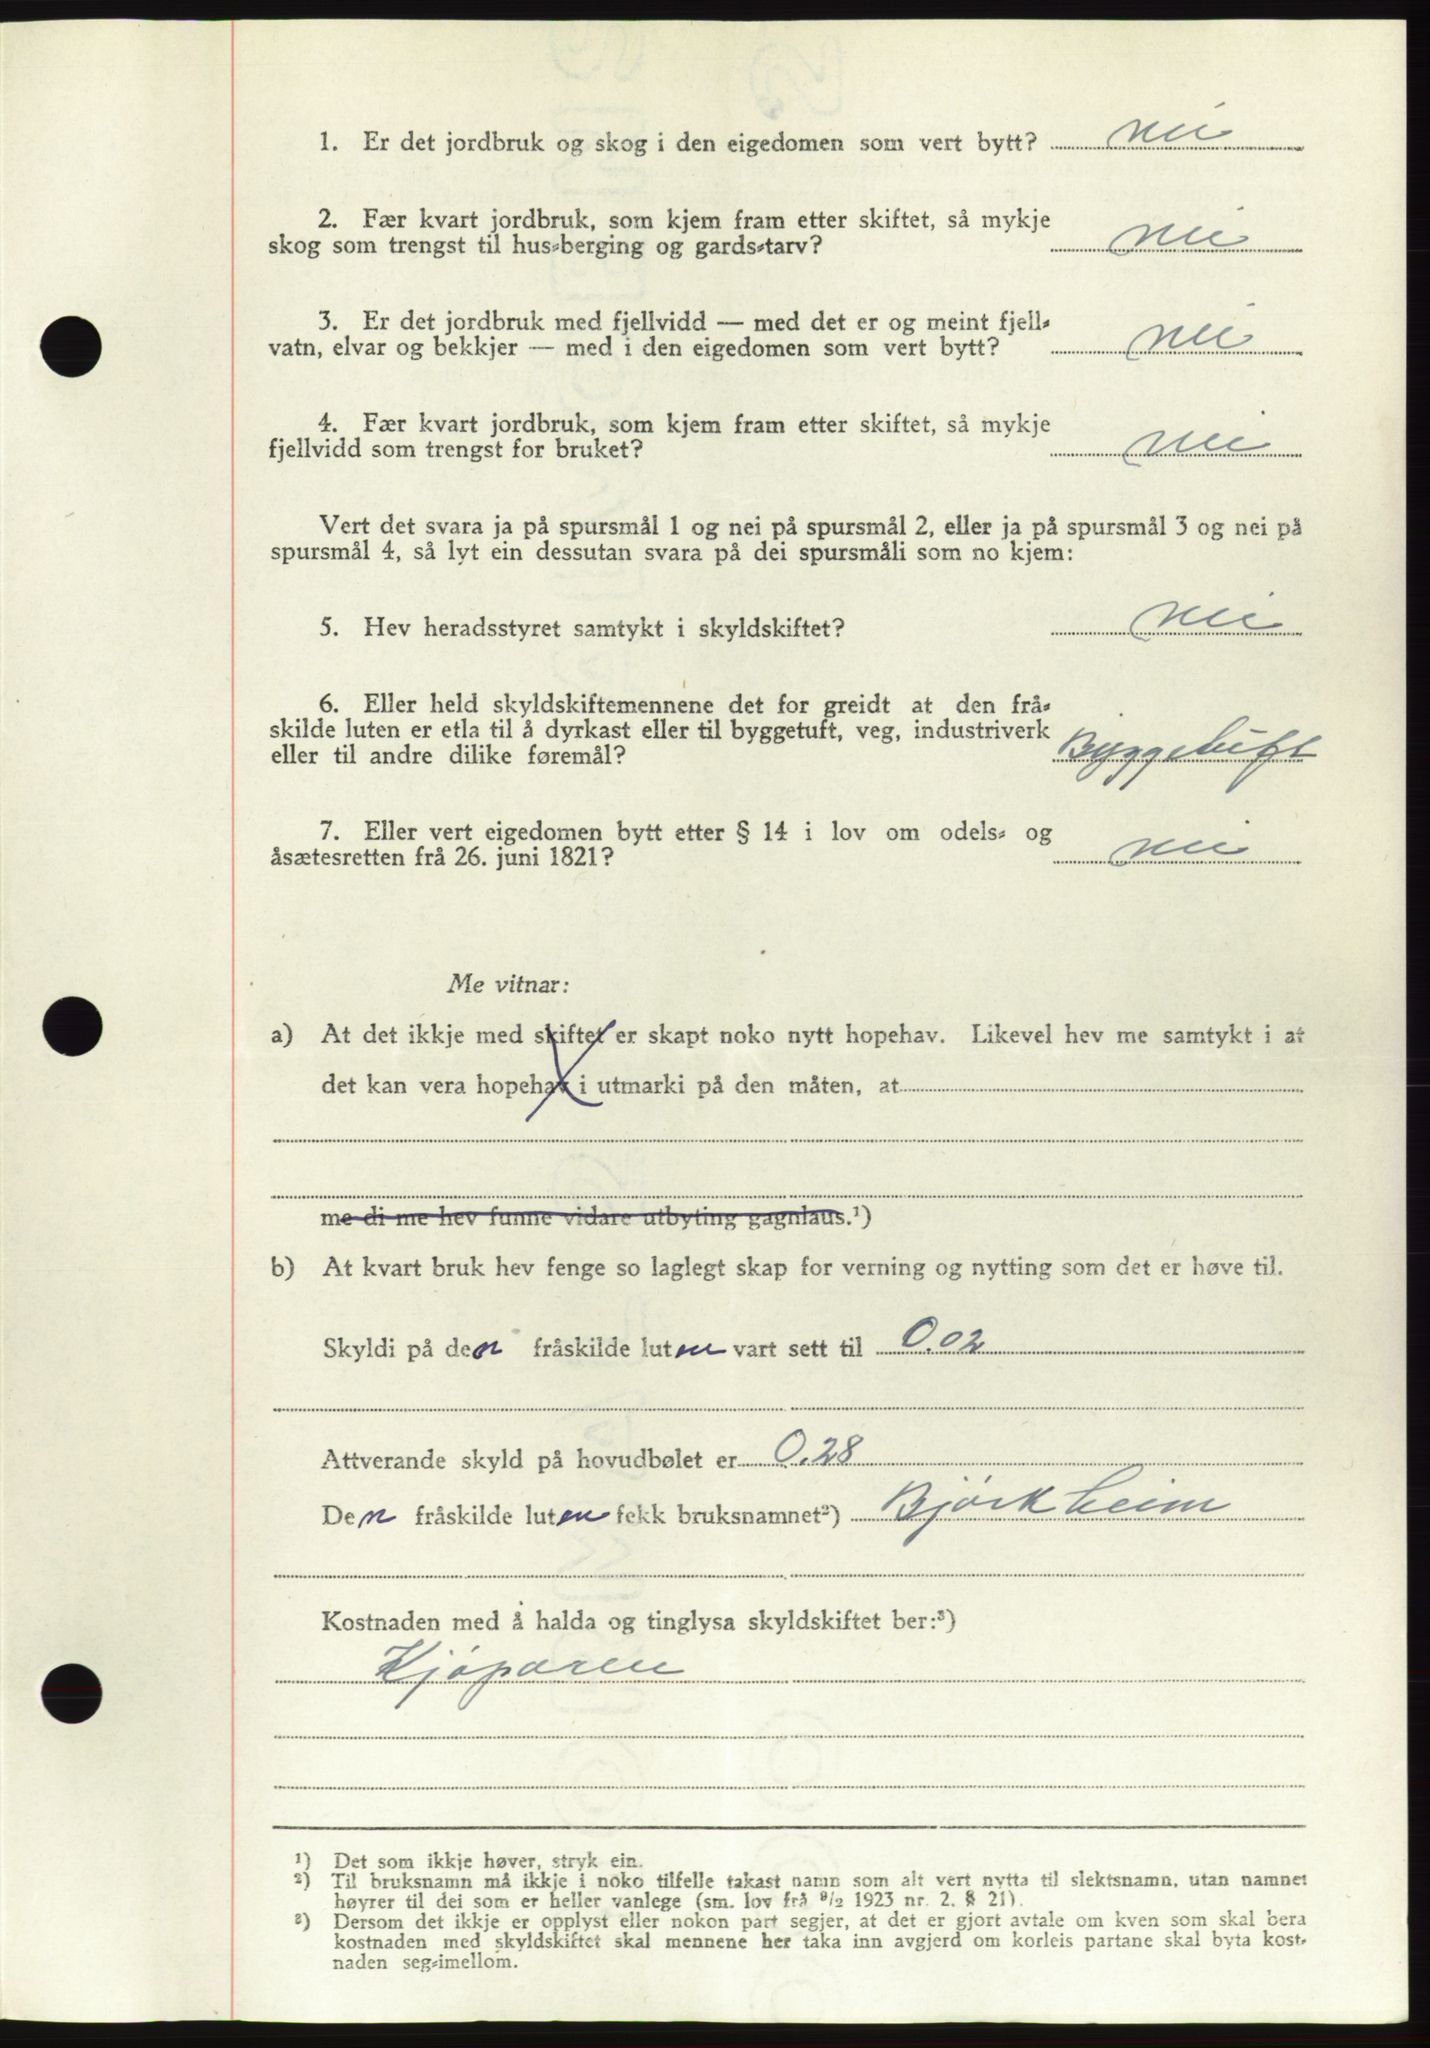 1. Er det jordbruk og skog i den eigedomen som vert bytt? nei
2. Fær kvart jordbruk, som kjem fram etter skiftet, så mykje
skog som trengst til hus-berging og gards-tarv? nei
3. Er det jordbruk med fjellvidd — med det er og meint fjell-
vatn, elvar og bekkjer — med i den eigedomen som vert bytt? nei
4. Fær kvart jordbruk, som kjem fram etter skiftet, så mykje
fjellvidd som trengst for bruket? nei
Vert det svara ja på spursmål 1 og nei på spursmål 2, eller ja på spursmål 3 og nei på
spursmål 4, så lyt ein dessutan svara på dei spursmåli som no kjem:
5. Hev heradsstyret samtykt i skyldskiftet? nei
6. Eller held skyldskiftemennene det for greidt at den frå-
skilde luten er etla til å dyrkast eller til byggetuft, veg, industriverk
eller til andre dilike føremål? Byggetuft
7. Eller vert eigedomen bytt etter § 14 i lov om odels- og
åsætesretten frå 26. juni 1821? nei
Me vitnar:
a) At det ikkje med skiftet er skapt noko nytt hopehav. Likevel hev me samtykt i at
det kan vera hopehav i utmarki på den måten, at
me di me hev funne vidare utbyting gagnlaus.¹)
b) At kvart bruk hev fenge so laglegt skap for verning og nytting som det er høve til.
Skyldi på den fråskilde luten vart sett til 0.02
Attverande skyld på hovudbølet er 0.28
Den fråskilde luten fekk bruksnamnet²) Bjørkheim
Kostnaden med å halda og tinglysa skyldskiftet ber:³)
Kjøparen
¹) Det som ikkje høver, stryk ein.
²) Til bruksnamn må ikkje i noko tilfelle takast namn som alt vert nytta til slektsnamn, utan namnet
høyrer til dei som er heller vanlege (sm. lov frå 9/2 1923 nr. 2. § 21).
³) Dersom det ikkje er opplyst eller nokon part segjer, at det er gjort avtale om kven som skal bera
kostnaden med skyldskiftet skal mennene her taka inn avgjerd om korleis partane skal byta kost-
naden seg-imellom.